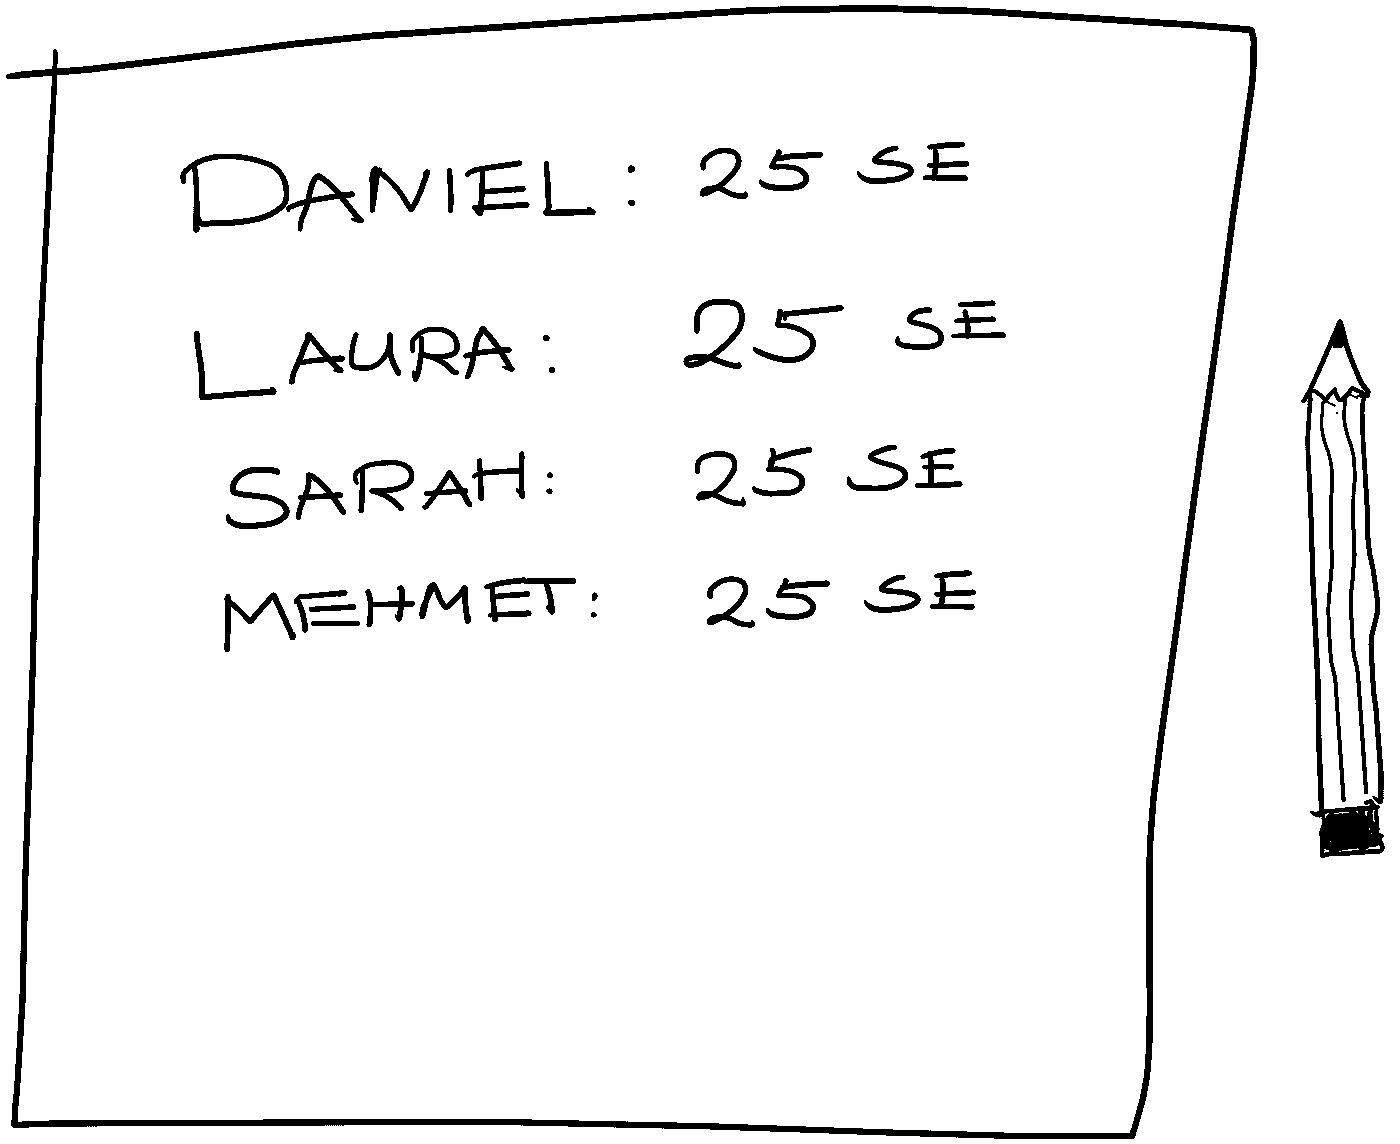 DANIEL: 25 SE
LAURA: 25 SE
SARAH: 25 SE
MEHMET: 25 SE